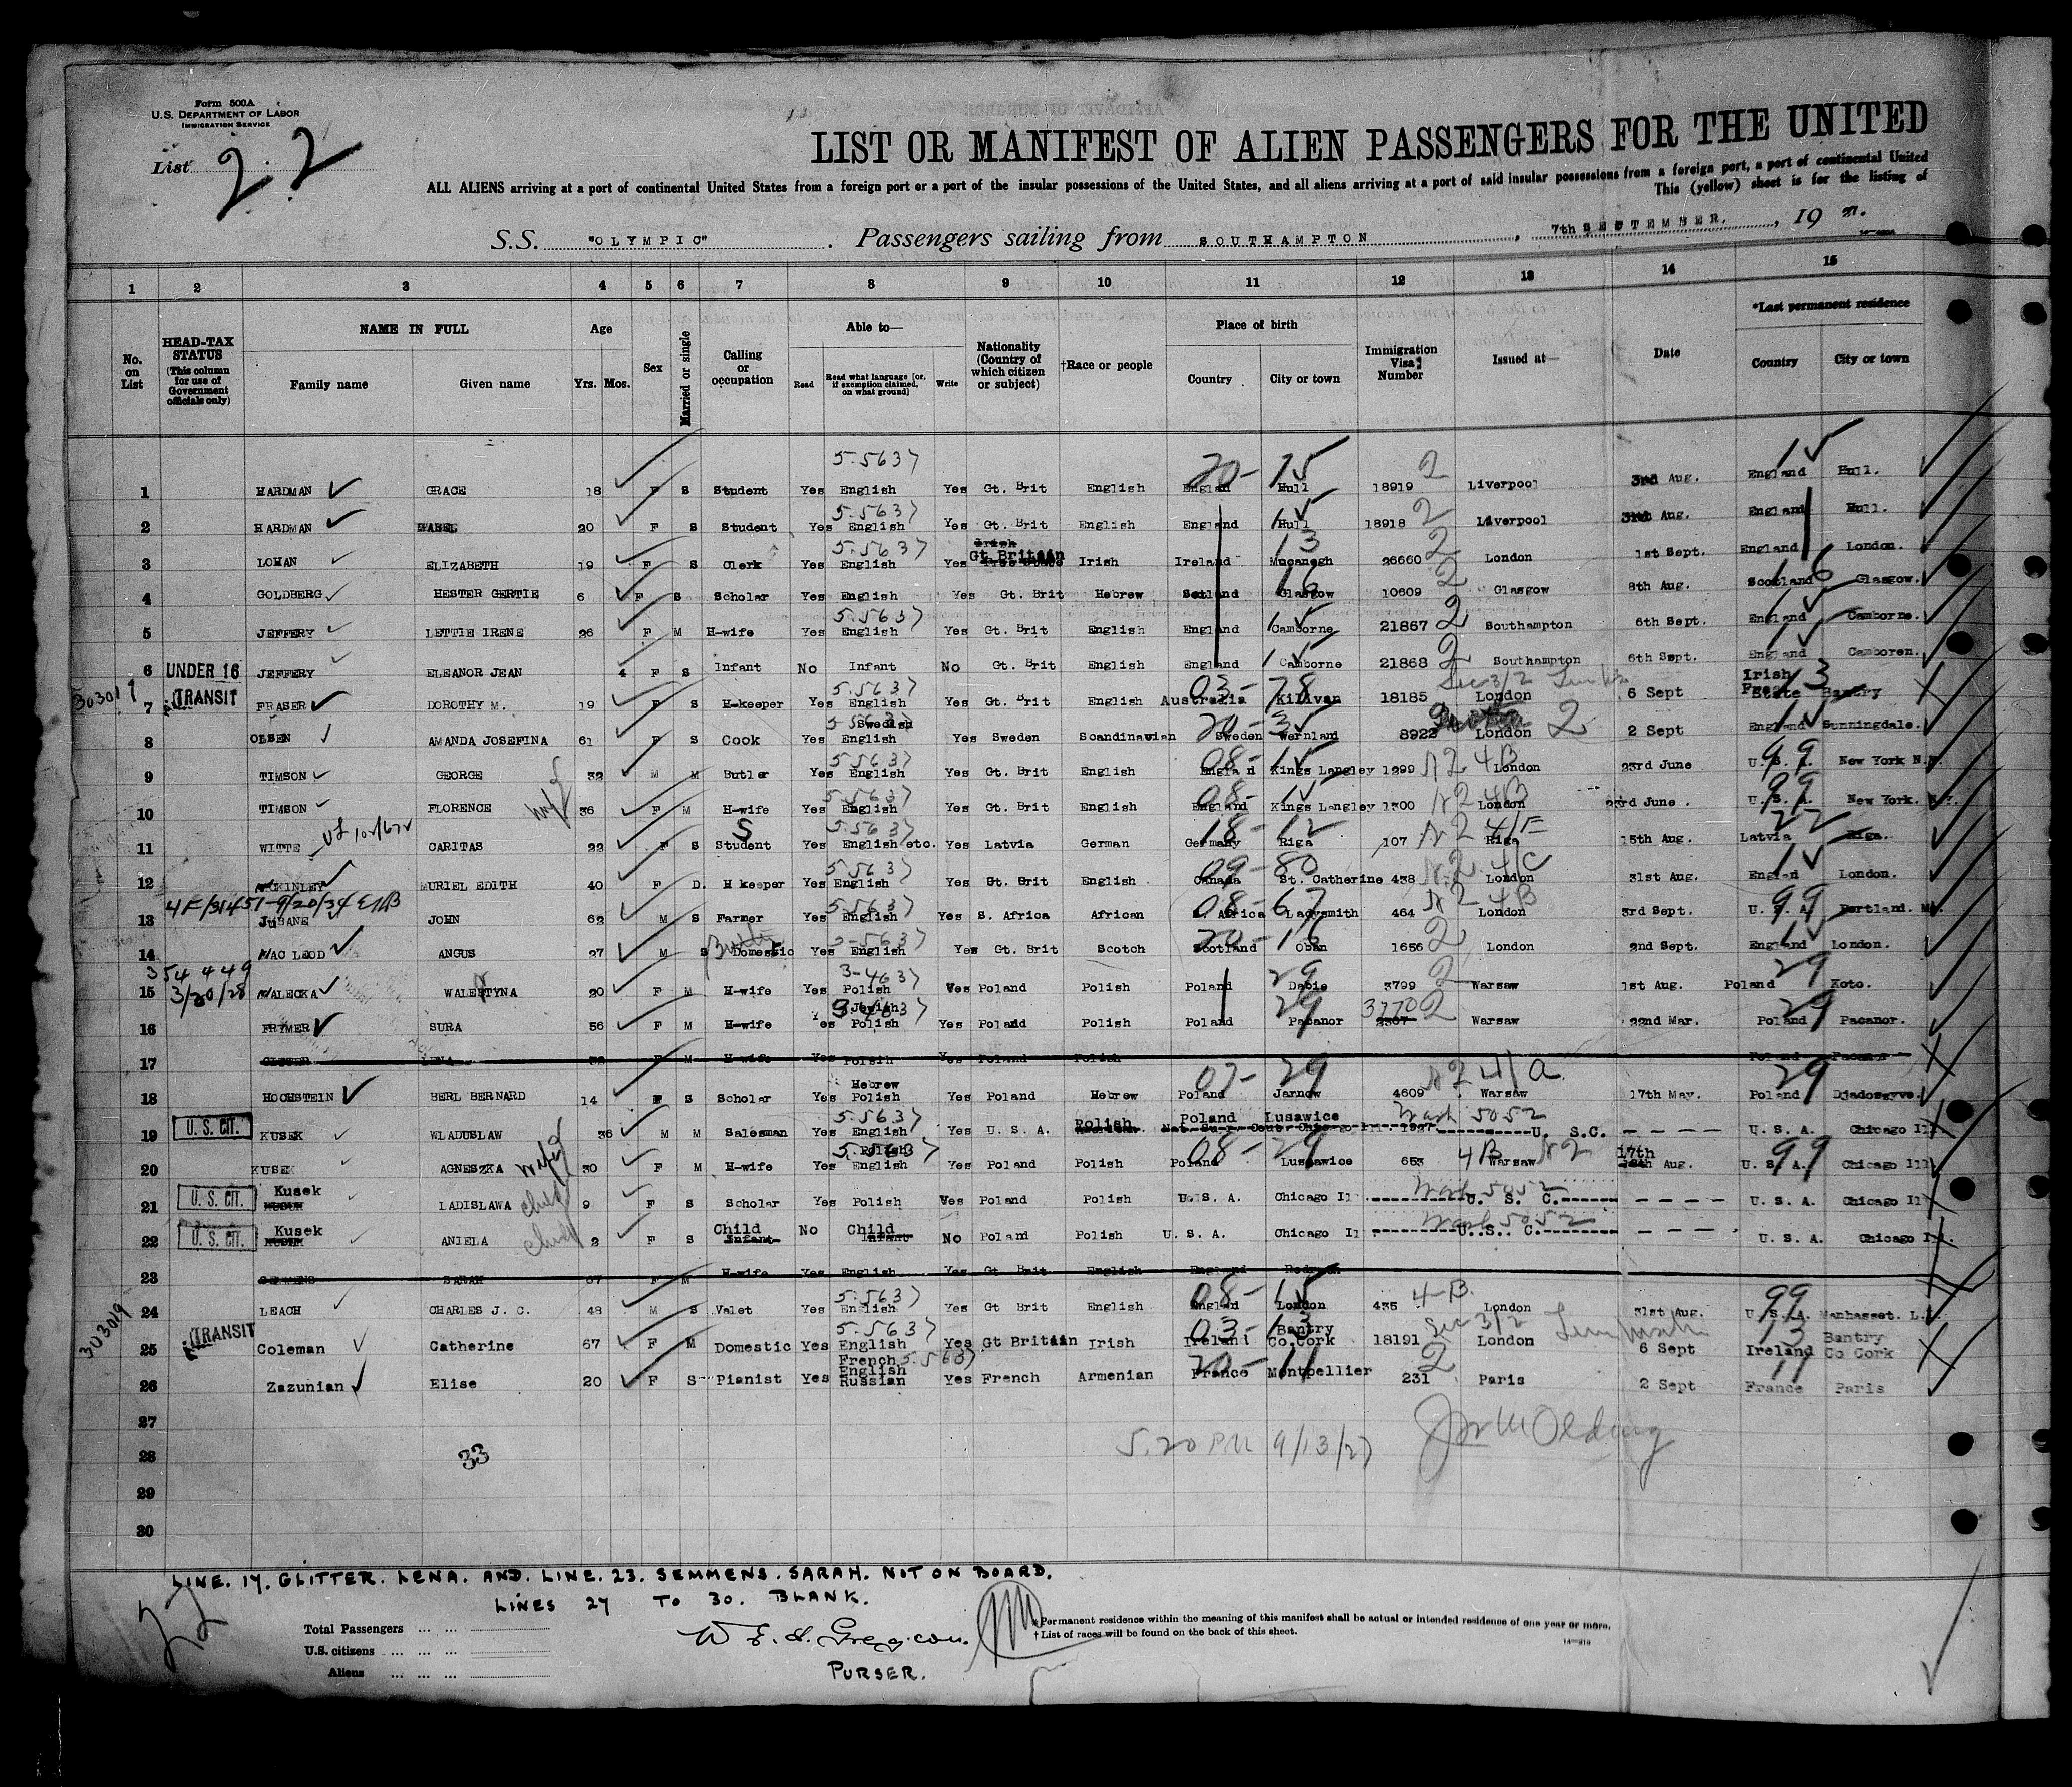 Form 500A
U.S. DEPARTMENT OF LABOR
IMMIGRATION SERVICE
List 22
LIST OR MANIFEST OF ALIEN PASSENGERS FOR THE UNITED
ALL ALIENS arriving at a port of continental United States from a foreign port or a port of the insular possessions of the United States, and all aliens arriving at a port of said insular possessions from a foreign port, a port of continental United
This (yellow) sheet is for the listing of
S.S. "OLYMPIC". Passengers sailing from SOUTHAMPTON, 7th SEPTEMBER., 19 27.
1 2 3 4 5 6 7 8 9 10 11 12 13 14 15
No. on List
HEAD-TAX STATUS (This column for use of Government officials only)
NAME IN FULL Family name Given name
Age Yrs. Mos.
Sex
Married or single
Calling or occupation
Able to— Read Read what language [or, if exemption claimed, on what ground] Write
Nationality (Country of which citizen or subject)
†Race or people
Place of birth Country City or town
Immigration Visa Number
Issued at—
Date
*Last permanent residence Country City or town
1 HARDMAN GRACE 18 F S Student Yes English 5-5637 Yes Gt. Brit English England Hull 20-15 18919 2 Liverpool 3rd Aug. England Hull.
2 HARDMAN MABEL 20 F S Student Yes English 5-5637 Yes Gt. Brit English England Hull 18918 2 Liverpool Aug. England Hull.
3 LOHAN ELIZABETH 19 F S Clerk Yes English 5-5637 Yes Irish Free State Gt. Britain Irish Ireland 13 26660 2 London 1st Sept. England London.
4 GOLDBERG HESTER GERTIE 6 F S Scholar Yes English Yes Gt. Brit Hebrew Scotland Glasgow 16 10609 2 Glasgow 8th Aug. Scotland Glasgow.
5 JEFFERY LETTIE IRENE 26 F M H-wife Yes English 5-5637 Yes Gt. Brit English England Camborne 21867 2 Southampton 6th Sept. England Camborne.
6 UNDER 16 JEFFERY ELEANOR JEAN 4 F S Infant No Infant No Gt. Brit English England Camborne 21868 2 Southampton 6th Sept. England Camboren.
303017 7 TRANSIT FRASER DOROTHY M. 19 F S H-keeper Yes English 5-5637 Yes Gt. Brit English Australia Killivan 03-78 18185 Sec 3/2 London 6 Sept Irish Free State Bantry 13
8 OLSEN AMANDA JOSEFINA 61 F S Cook Yes Swedish English Yes Sweden Scandinavian Sweden Wernland 8922 London 2 2 Sept England Sunningdale.
9 TIMSON GEORGE 32 M M Butler Yes English 5-5637 Yes Gt. Brit English England Kings Langley 08-15 1299 4B London 23rd June U.S.A. New York N.Y. 99
10 TIMSON FLORENCE wife 36 F M H-wife Yes English 5-5637 Yes Gt. Brit English England Kings Langley 1300 4B London 23rd June. U.S.A. New York. N.Y. 99
11 WITTE CARITAS 22 F S Student Yes English etc. 5-5637 Yes Latvia German Germany Riga 18-12 107 Riga 15th Aug. Latvia Riga. 22
12 McKINLEY MURIEL EDITH 40 F D. H keeper Yes English 5-5637 Yes Gt. Brit English Canada St. Catherine 09-80 438 4C London 31st Aug. England London.
13 JUBANE JOHN 62 M S Farmer Yes English 5-5637 Yes S. Africa African S. Africa Ladysmith 08-67 464 4B London 3rd Sept. U.S.A. Portland. Me. 99
14 MAC LEOD ANGUS 27 M S Domestic Yes English Yes Gt. Brit Scotch Scotland Oban 20-16 1656 2 London 2nd Sept. England London.
354449 3/20/28
15 MALECKA WALENTYNA 20 F M H-wife Yes Polish Yes Poland Polish Poland Dabie 29 3799 2 Warsaw 1st Aug. Poland Koto. 29
16 FRYMER SURA 56 F M H-wife Yes Jewish Polish Yes Poland Polish Poland Pacanor 29 3770 2 Warsaw 22nd Mar. Poland Pacanor. 29
17 GLITTER LENA 32 F M H-wife Yes Polsih Yes Poland Polish Poland Pacanor
18 HOCHSTEIN BERL BERNARD 14 S Scholar Yes Hebrew Polish Yes Poland Hebrew Poland Jarnow 07-29 4609 Warsaw 17th May. Poland Djadosgyve. 29
19 U.S. CIT. KUSEK WLADUSLAW 36 M M Salesman Yes English 5-5637 Yes U.S.A. Polish Poland Lusawice U.S.C. U.S.A. Chicago Ill
20 KUSEK AGNESZKA wife 30 F M H-wife Yes Polish English Yes Poland Polish Poland Lussawice 08-29 653 4B Warsaw 17th Aug. U.S.A. Chicago Ill 99
21 U.S. CIT. Kusek LADISLAWA child 9 F S Scholar Yes Polish Yes Poland Polish U.S.A. Chicago Il U. S. C. U.S.A. Chicago Il
22 U.S. CIT. Kusek ANIELA child 2 F S Child Infant No Child Infant No Poland Polish U.S.A. Chicago Il U.S.C. U.S.A. Chicago Ill.
23 SEMMENS SARAH 67 F M H-wife Yes English Yes Gt Brit English England Redruth
24 LEACH CHARLES J. C. 48 M S Valet Yes English 5-5637 Yes Gt Brit English England London 08-15 435 4-B London 31st Aug. U.S.A. Manhasset. L.I. 99
303019 25 TRANSIT Coleman Catherine 67 F M Domestic Yes English 5-5637 Yes Gt Britain Irish Ireland Bantry Co.Cork 03-13 18191 Sec 3/2 London 6 Sept Ireland Bantry Co Cork 13
26 Zazunian Elise 20 F S Pianist Yes French English Russian 5-5637 Yes French Armenian France Montpellier 20-11 231 2 Paris 2 Sept France Paris 11
27
28 33 5.20 PM 9/13/27
29
30
LINE. 17. GLITTER. LENA. AND. LINE. 23. SEMMENS. SARAH. NOT ON BOARD.
LINES 27 TO 30. BLANK.
22
Total Passengers
U.S. citizens
Aliens
PURSER.
*Permanent residence within the meaning of this manifest shall be actual or intended residence of one year or more.
†List of races will be found on the back of this sheet.